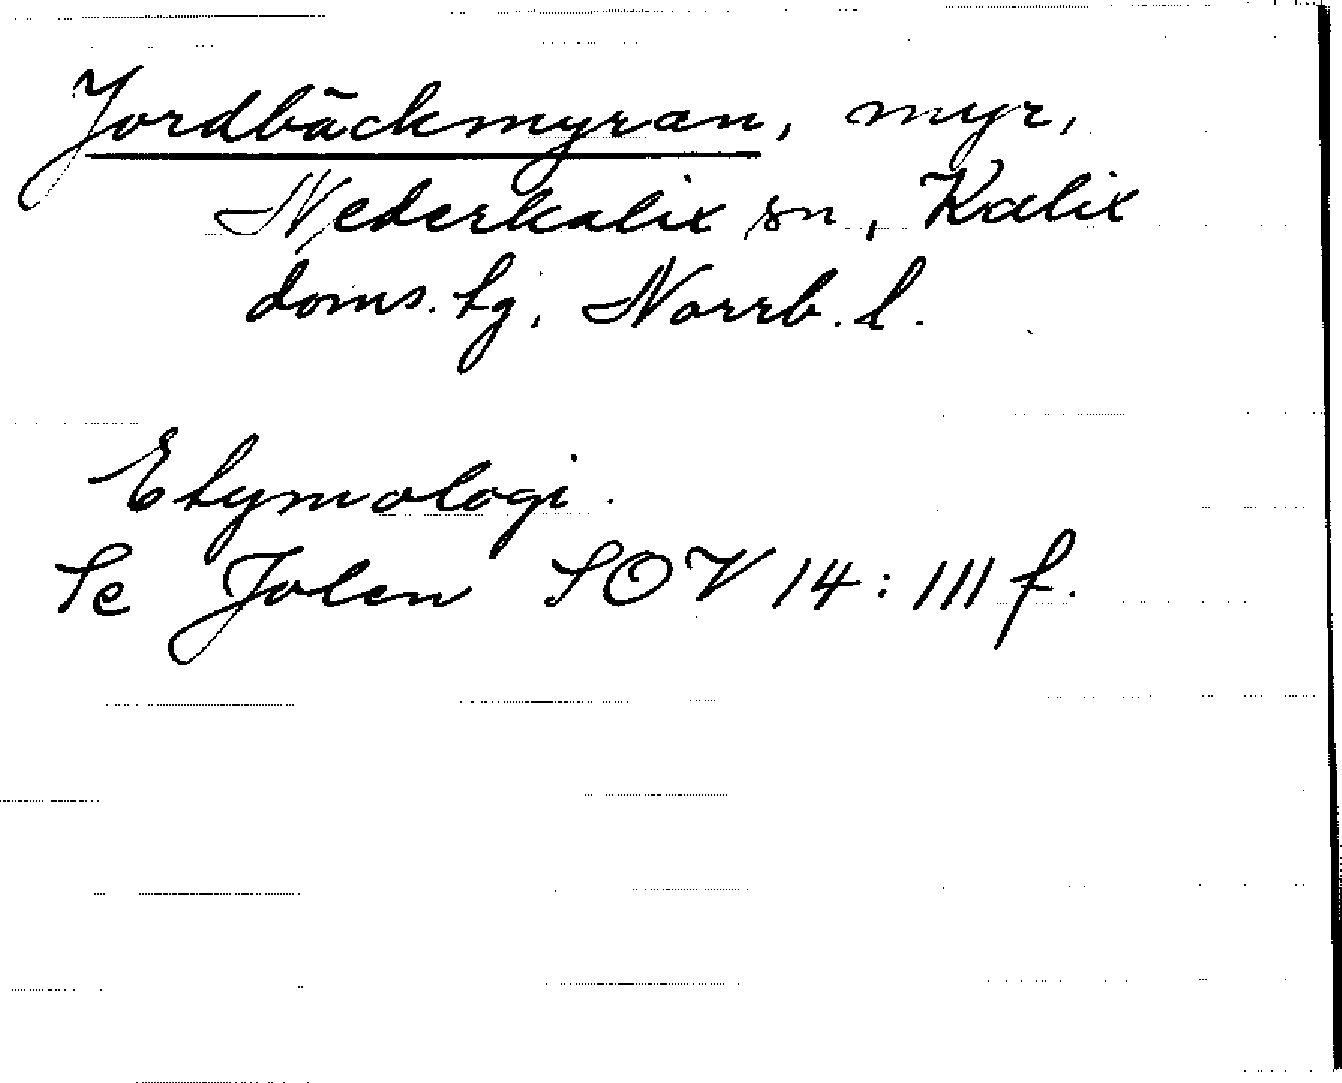 Jordbäckmyran, myr,
Nederkalix sn, Kalix
doms. tg, Norrb. l.
Etymologi.
Se Jolen SOV 14:111 f.